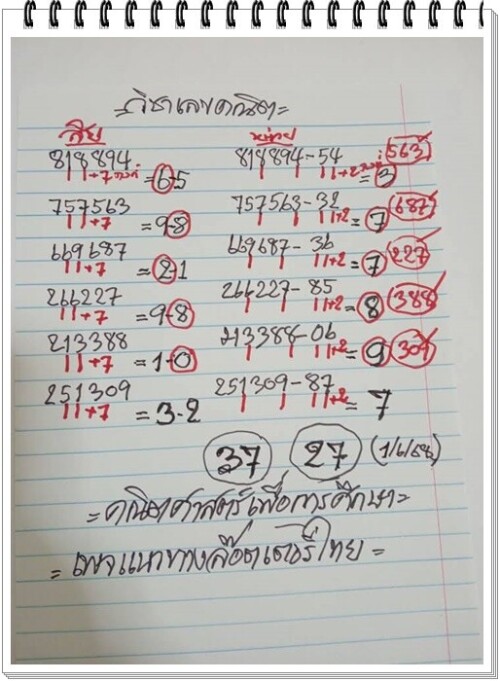 =วิชาเลขคณิต=
สิบ หน่วย
818894 +7 = 6-5 818894-54 +2 = 3 563
757563 +7 = 9-8 757563-32 +2 = 7 687
669687 +7 = 2-1 669687-36 +2 = 7 227
266227 +7 = 9-8 266227-85 +2 = 8 388
213388 +7 = 1-0 213388-06 +2 = 9 309
251309 +7 = 3-2 251309-87 +2 = 7
37 27 (1/6/68)
=คณิตศาสตร์เพื่อการศึกษา=
=เพจแนวทางล๊อตเตอรี่ไทย=